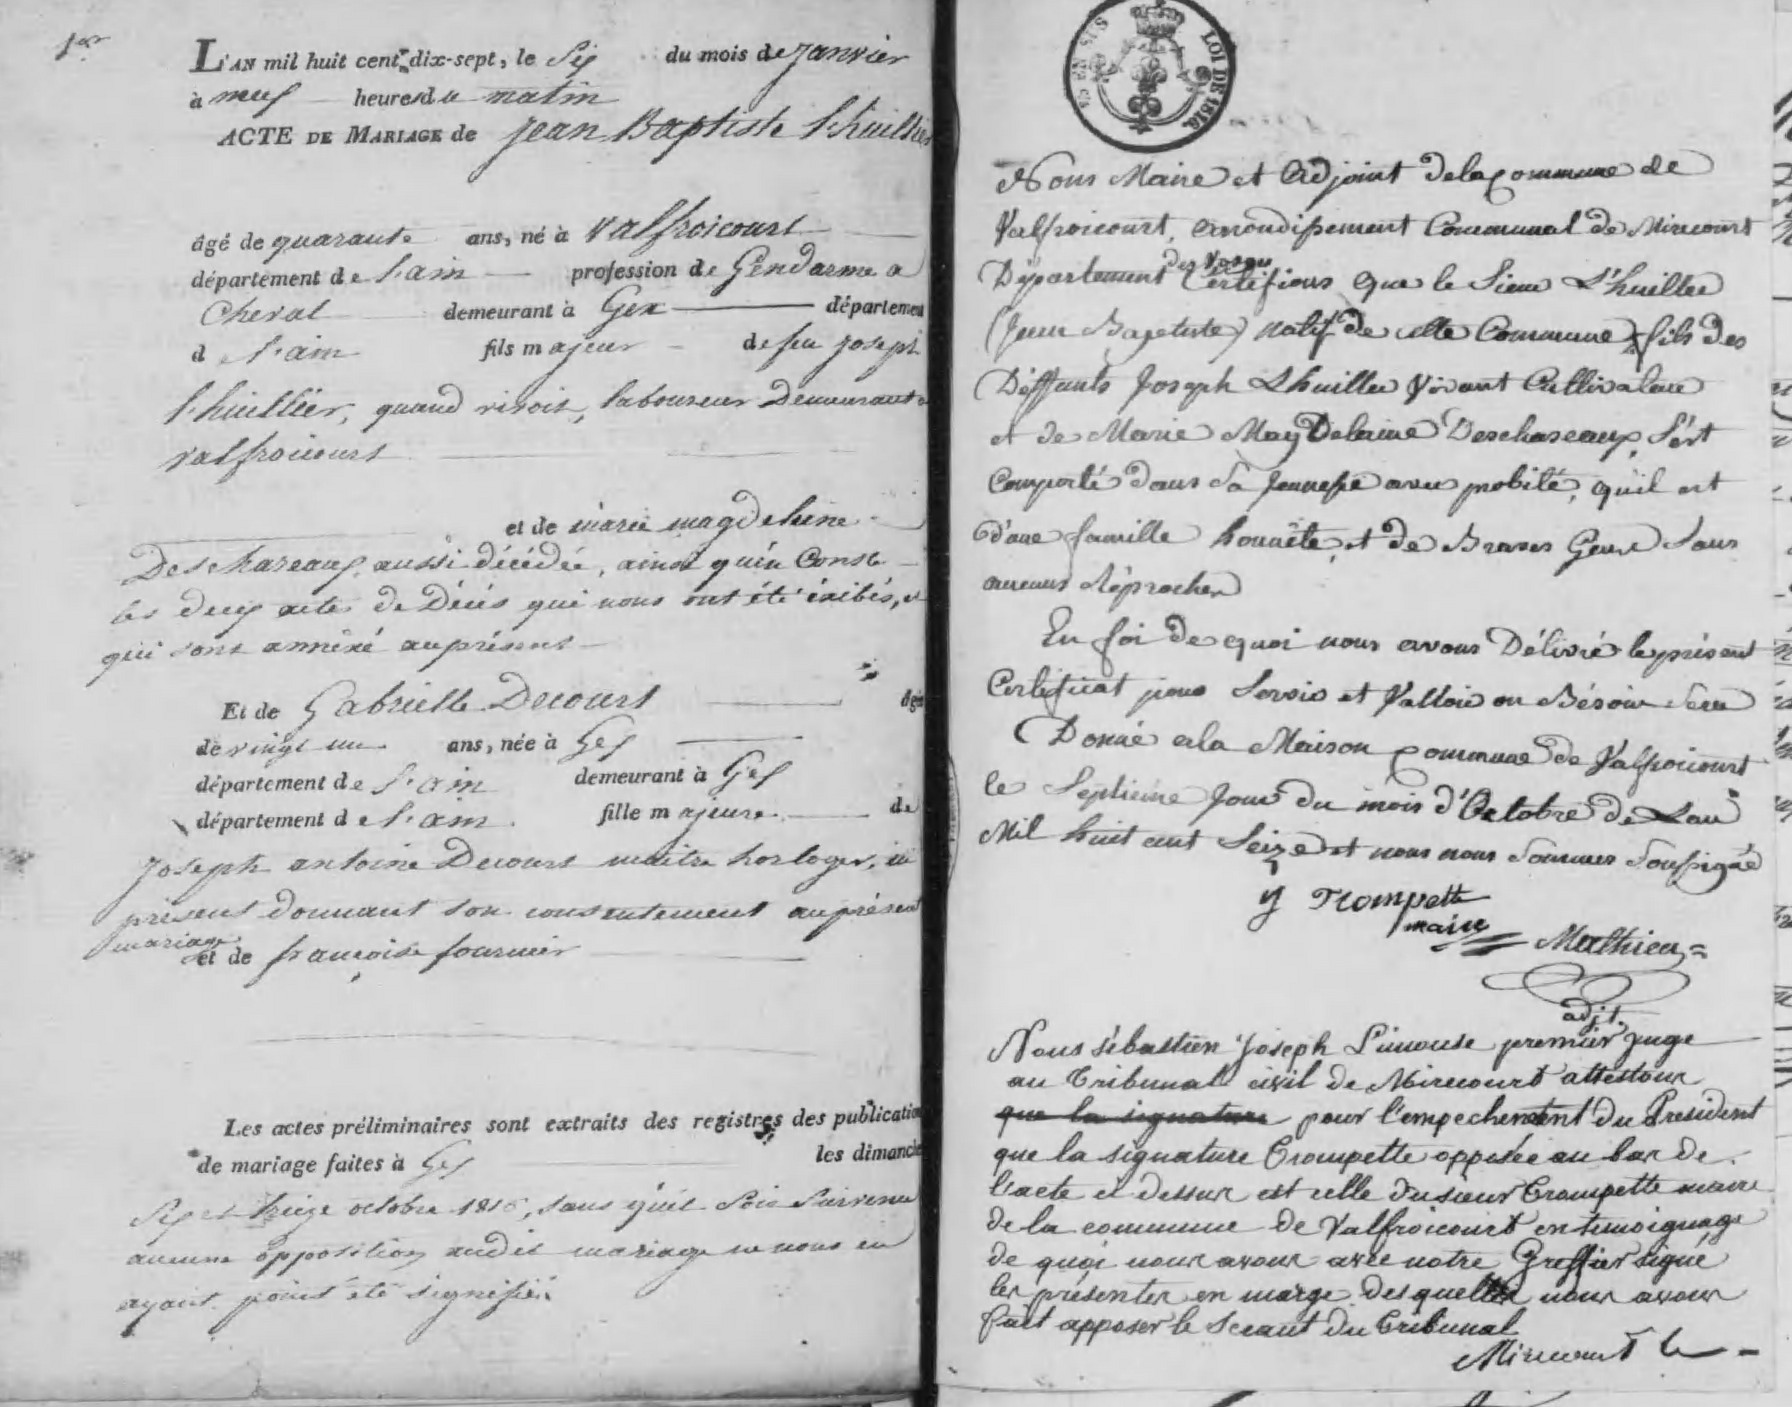 1er
L'AN mil huit cent dix-sept, le Six du mois de Janvier
à neuf heures du matin
ACTE DE MARIAGE de Jean Baptiste L'huillier
âgé de quarante ans, né à Valfroicourt
département de l'ain profession de Gendarme a
Cheval demeurant à Gex département
d e l'ain fils majeur de feu Joseph
L'huillier, quand vivoit, laboureur Demeurant a
valfroicourt
et de marie magdeleine
Deschazeaux, aussi décédée, ainsi qu'en Conste
les deux actes de Décès qui nous ont été exibés, et
qui sont annéxé au présent
Et de Gabrielle Decourt âgée
de vingt un ans, née à Gex
département de l'ain demeurant à Gex
département d e l'ain fille majeure de
Joseph antoine Decourt maitre horloger, ici
présent donnant son consentement au présent
mariage
et de françoise fournier
Les actes préliminaires sont extraits des registres des publications
de mariage faites à Gex les dimanches
Six et treize octobre 1816, sans qu'il Soit Survenu
aucune opposition audit mariage ne nous en
ayant point été signifié.
5 EN SUS
LOI DE 1816
Nous Maire et Adjoint de la Commune de
Valfroicourt, arrondissement Communal de Mirecourt
Département des Vosges Certifions que le Sieur L'huillier
(Jean Baptiste) natif de cette Commune, fils des
Déffunts Joseph Lhuillier Vivant Cultivateur
et de Marie Magdelaine Deschaseaux, S'ést
Comporté dans Sa Jeunesse avec probité, qu'il est
d'une famille honnête, et de Braves Gens Sans
aucuns Réproches
En foi de quoi nous avons Délivré le présent
Certificat pour Servir et Valloir ou Bésoin Sera
Donné a la Maison Commune de Valfroicourt
le Séptieme Jour du mois d'Octobre de Lan
Mil huit cent Seize et nous nous Sommes Soussigné
Trompette
maire
Mathieu
adjt.
Nous sébastien Joseph Limouse premier Juge
au Tribunal civil de Mirecourt attestons
que la signature pour l'empechement du President
que la signature Trompette apposée au bas de
l'acte ci dessus est celle du sieur Trompette maire
de la commune de Valfroicourt en temoignage
de quoi nous avons avec notre Greffier signé
les présentes en marge desquelles nous avons
fait apposer le Sceaut du Tribunal
Mirecourt le